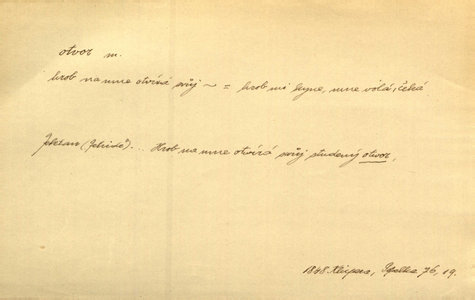 otvor m.
hrob na mne otvírá svůj ~ = hrob mi kyne, mne volá, čeká
(Jehuda)... Hrob na mne otvírá svůj studený otvor.
1848. Klicpera, 76, 19.